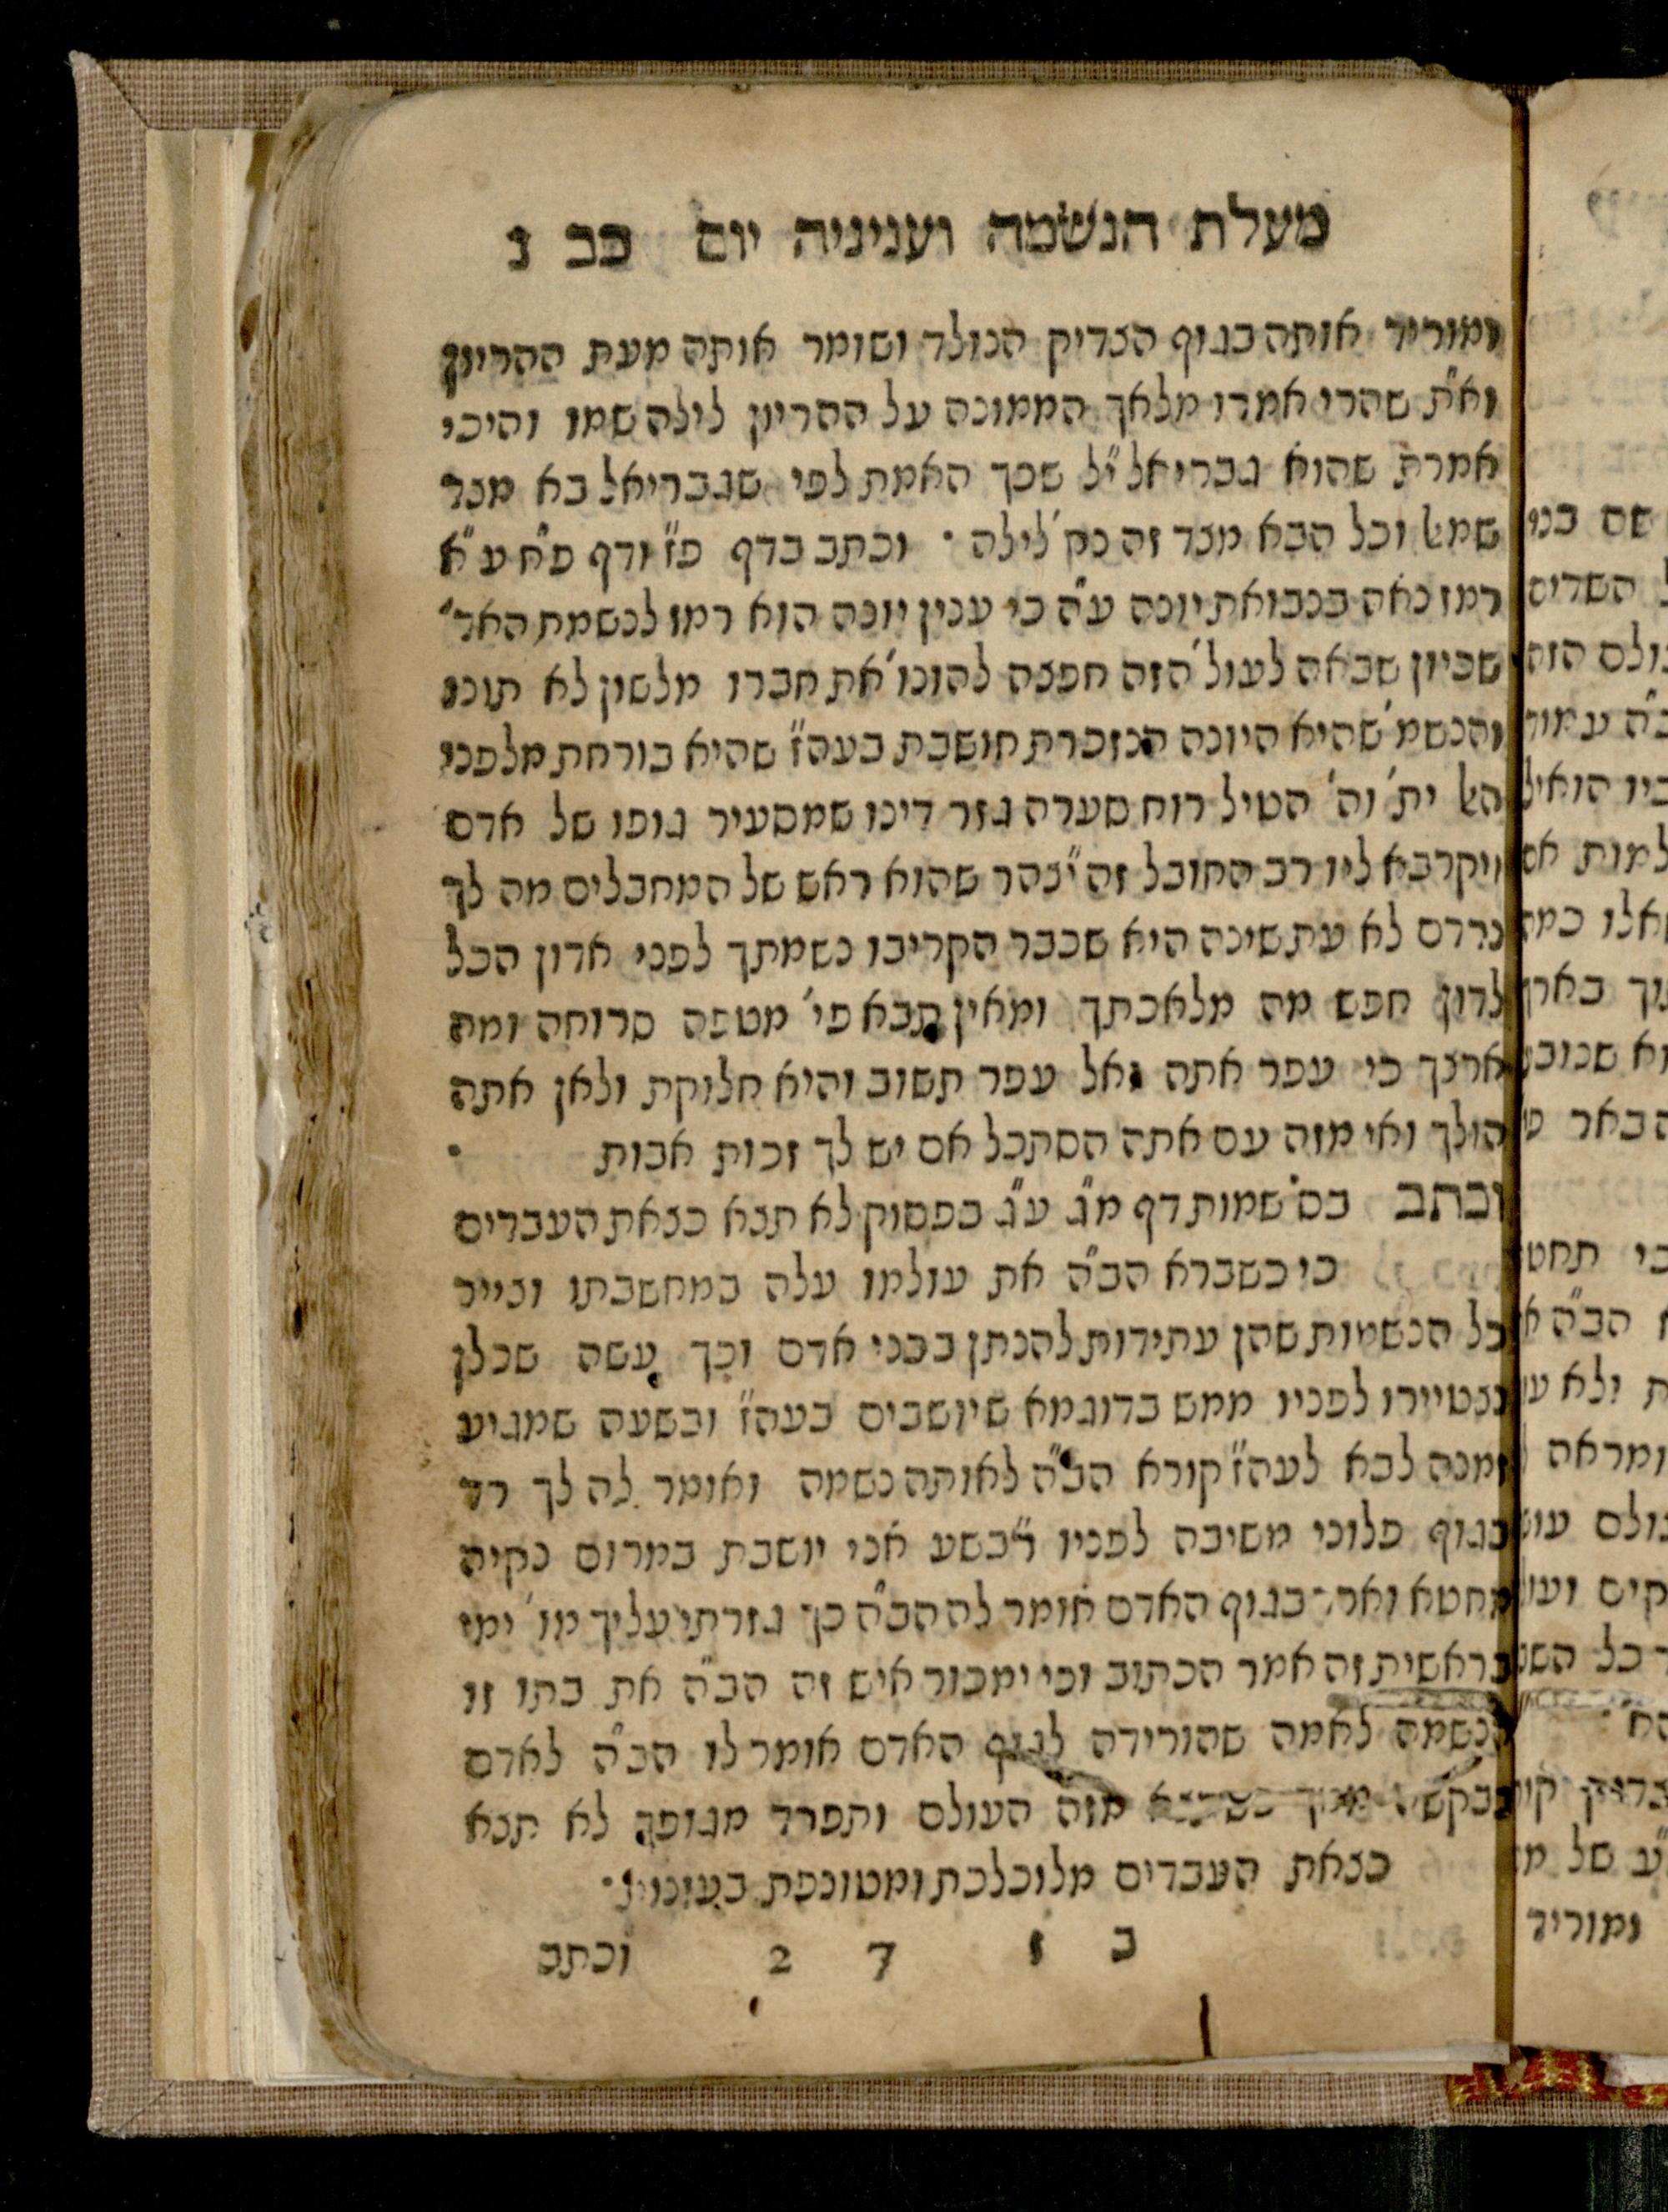 מעלת הנשמה ועניניה יום כב נ
ומוריד אותה בגוף הצדיק הנולד ושומר אותה מעת ההריון
וא"ת שהרי אמרו מלאך הממונה על ההריון לילה שמו והיכי
אמרת שהוא גבריאל י"ל שכך האמת לפי שגבריאל בא מצד
שמאל וכל הבא מצד זה נק' לילה · וכתב בדף פ"ז ודף פ"ח ע"א
רמז נאה בנבואת יונה ע"ה כי ענין יונה הוא רמז לנשמת האד'
שכיון שבאה לעול' הזה חפצה להונו' את חברו מלשון לא תונו
והנשמ' שהיא היונה הנזכרת חושבת בעה"ז שהיא בורחת מלפני
האל ית' וה' הטיל רוח סערה גזר דינו שמסעיר גופו של אדם
ויקרב אליו רב החובל זה י"צהר שהוא ראש של המחבלים מה לך
נרדם לא עת שינה היא שכבר הקריבו נשמתך לפני אדון הכל
לדון חפש מה מלאכתך ומאין תבא פי' מטפה סרוחה ומה
ארצך כי עפר אתה ואל עפר תשוב והיא חלוקת ולאן אתה
הולך ואי מזה עם אתה הסתכל אם יש לך זכות אבות ·
וכתב בס' שמות דף מ"ג ע"ג בפסוק לא תצא כצאת העבדים
כי כשברא הב"ה את עולמו עלה במחשבתו וצייר
כל הנשמות שהן עתידות להנתן בבני אדם וכך עשה שכלן
נצטיירו לפניו ממש בדוגמא שיושבים בעה"ז ובשעה שמגיע
זמנה לבא לעה"ז קורא הב"ה לאותה נשמה ואומר לה לך רד
בגוף פלוני משיבה לפניו רבש"ע אני יושבת במרום נקיה
מחטא וארד בגוף האדם אומר לה הב"ה כך גזרתי עליך מו' ימי
בראשית זה אמר הכתוב וכי ימכור איש זה הב"ה את בתו זו
הנשמה לאמה שהורידה לגוף האדם אומר לו הב"ה לאדם
בבקשה ממך כשתצא מזה העולם ותפרד מגופך לא תצא
כצאת העבדים מלוכלכת ומטונפת בעונות ·
ב ז 7 2 וכתב